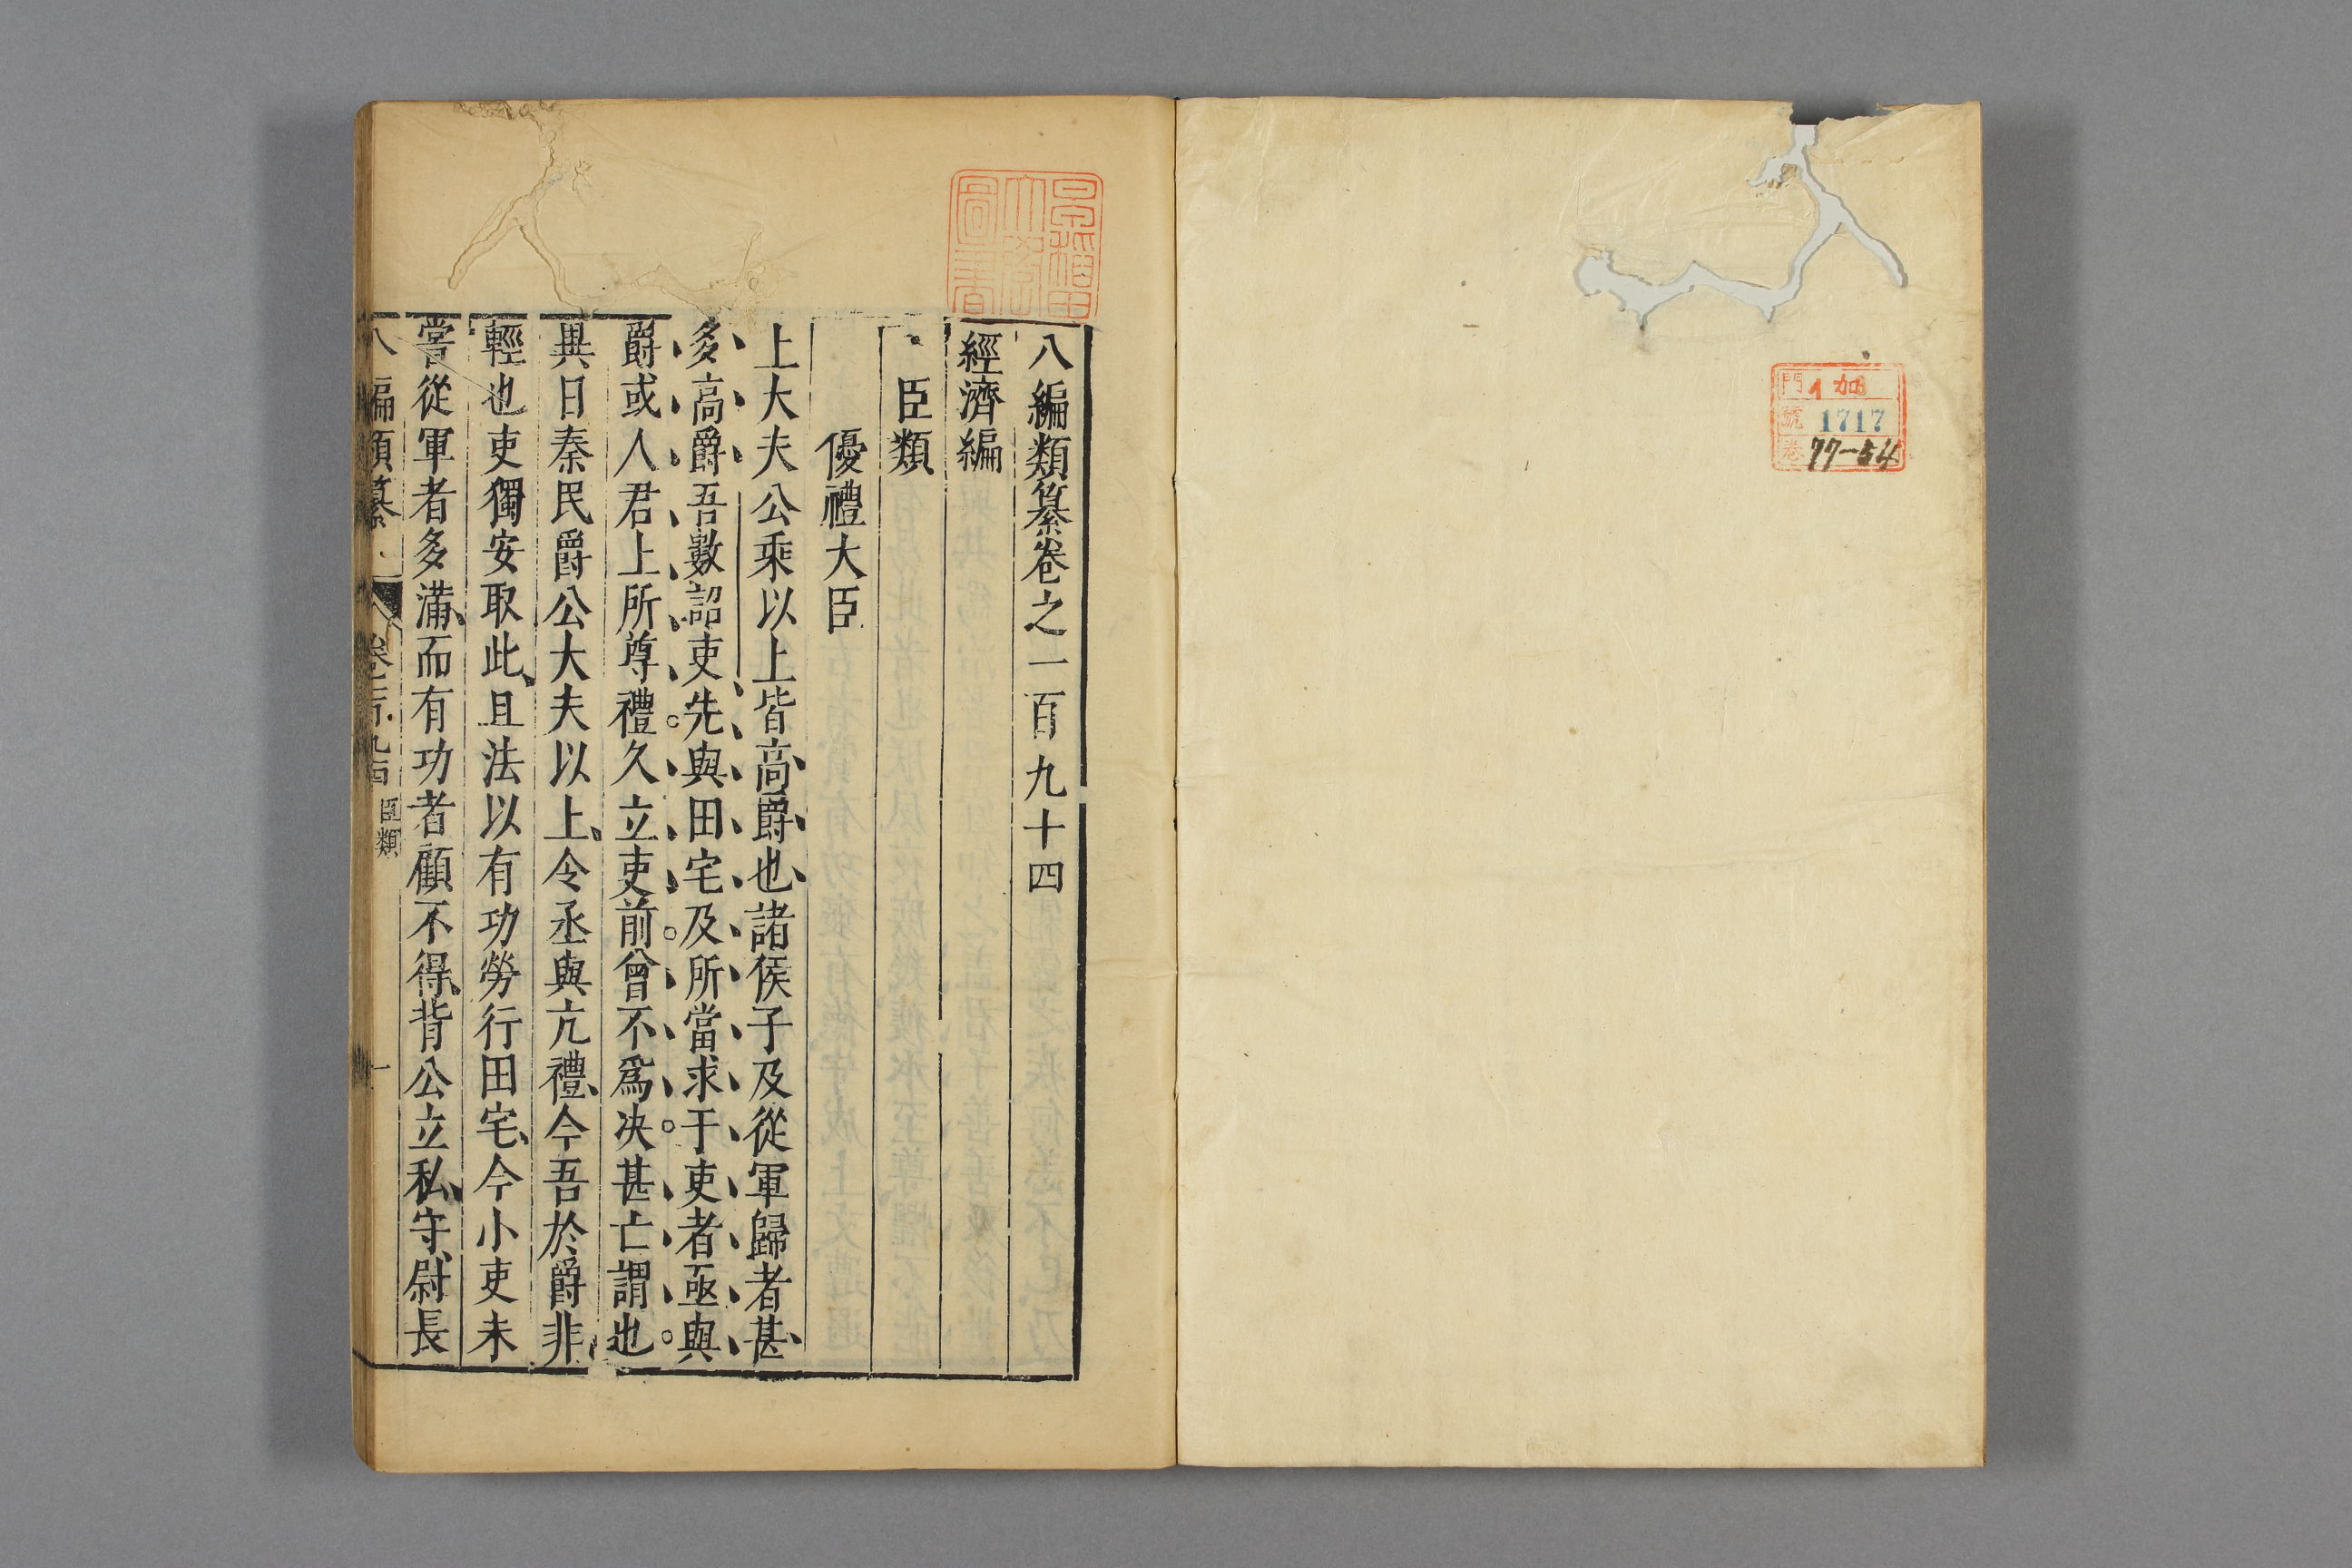 八編類纂卷之一百九十四
經濟編
臣類
優禮大臣
上大夫公乘以上皆高爵也諸侯子及從軍歸者甚
多高爵吾數詔吏先與田宅及所當求于吏者亟與
爵或人君上所尊禮久立吏前曾不爲决甚亡謂也
異日秦民爵公大夫以上令丞與亢禮今吾於爵非
輕也吏獨安取此且法以有功勞行田宅今小吏未
嘗從軍者多滿而有功者顧不得背公立私守尉長
八編類纂
臣類
一
早稻田大學圖書
門 イ加
號 1717
卷 77-54